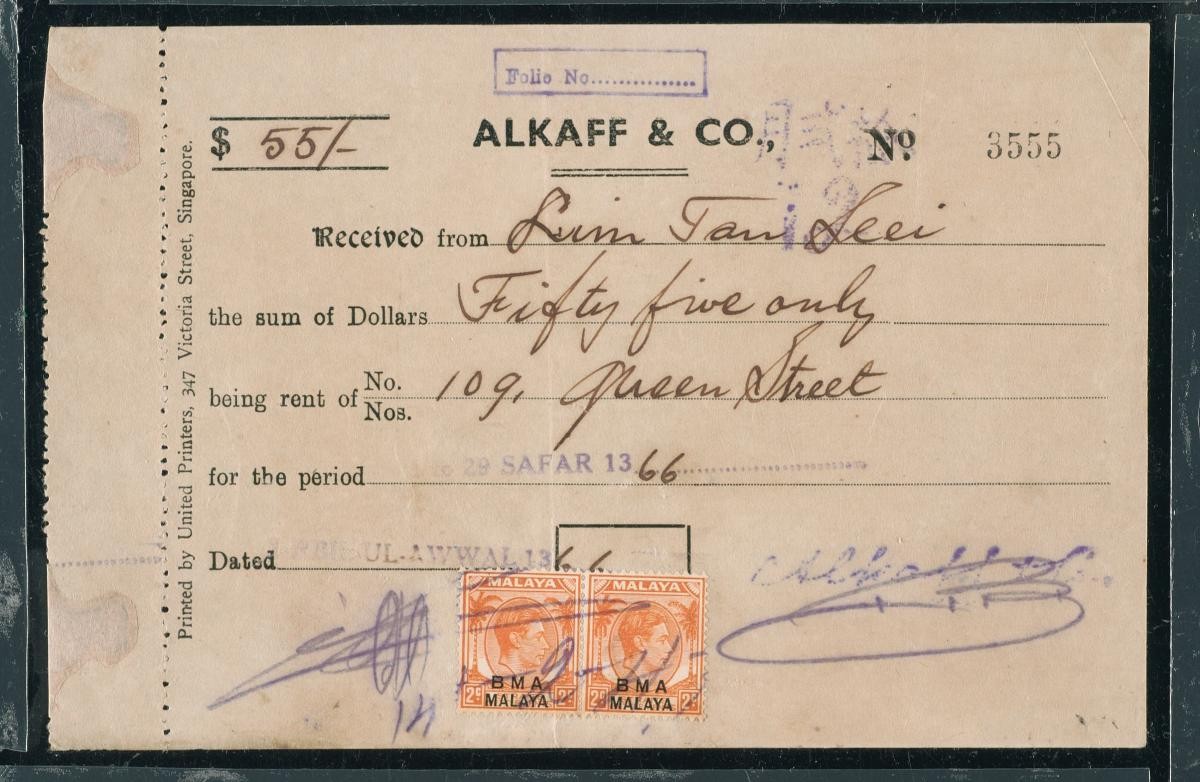 Folio No...............
$ 55/-
ALKAFF & CO.,
No. 3555
Received from Lim Tan Seei
the sum of Dollars Fifty five only
being rent of No. Nos. 109, Queen Street
for the period to 29 SAFAR 1366
Dated UL-AWWAL 1366
MALAYA MALAYA
BMA BMA
2c MALAYA 2c 2c MALAYA 2c
14
Printed by United Printers, 347 Victoria Street, Singapore.